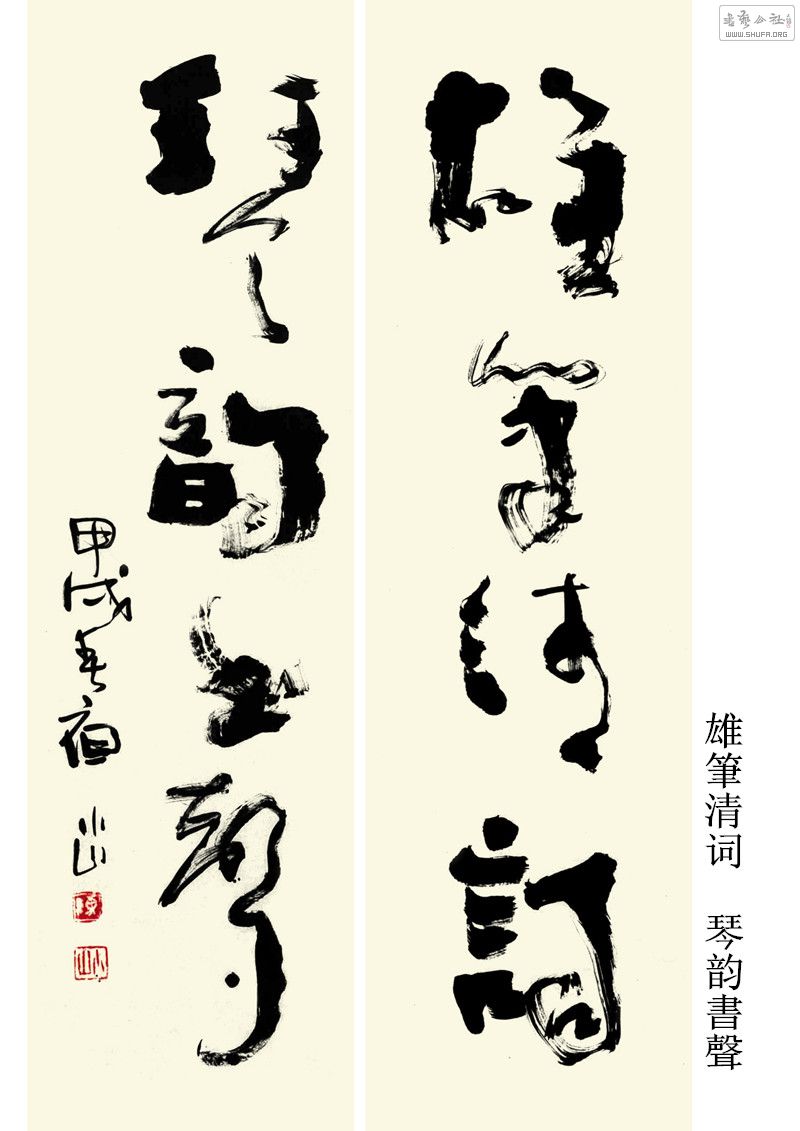 書藝公社
WWW.SHUFA.ORG
雄筆清詞
琴韵書聲
甲戌春夜
小山
雄筆清词 琴韵書聲